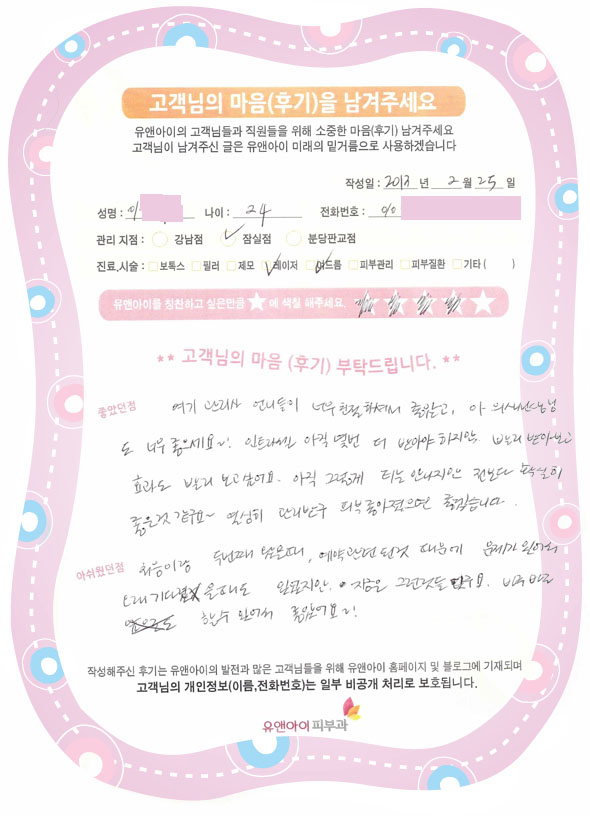 고객님의 마음(후기)을 남겨주세요
유앤아이의 고객님들과 직원들을 위해 소중한 마음(후기) 남겨주세요
고객님이 남겨주신 글은 유앤아이 미래의 밑거름으로 사용하겠습니다
작성일 : 2013 년 2 월 25 일
성명 : 이 나이 : 24 전화번호 : 010
관리 지점 : 강남점 잠실점 분당판교점
진료,시술 : 보톡스 필러 제모 레이저 여드름 피부관리 피부질환 기타 ( )
유앤아이를 칭찬하고 싶은만큼 ★에 색칠 해주세요.
** 고객님의 마음 (후기) 부탁드립니다. **
좋았던점 여기 관리사 언니들이 너무 친절하셔서 좋았고, 아 의사선생님
도 너무 좋으세요~! 인트라셀 아직 몇번 더 받아야 하지만 빨리 받아보고
효과도 빨리 보고싶어요. 아직 그렇게 티는 안나지만 전보다 확실히
좋은것 같구요~ 열심히 관리받구 피부 좋아졌으면 좋겠습니다.
아쉬웠던점 처음이랑 두번째 왔을때, 예약관련 된것 때문에 문제가 있어서
오래 기다 을때도 있었지만. 지금은 그런것들 없구요. 바로바로
할수 있어서 좋았어요~!
작성해주신 후기는 유앤아이의 발전과 많은 고객님들을 위해 유앤아이 홈페이지 및 블로그에 기재되며
고객님의 개인정보(이름,전화번호)는 일부 비공개 처리로 보호됩니다.
유앤아이피부과